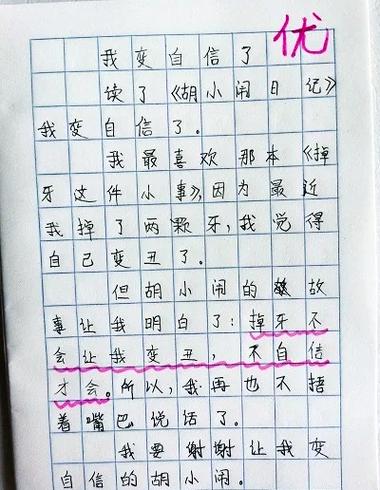 优
我变自信了
读了《胡小闹日记》
我变自信了。
我最喜欢那本《掉
牙这件小事》,因为最近
我掉了两颗牙,我觉得
自己变丑了。
但胡小闹的故
事让我明白了:掉牙不
会让我变丑,不自信
才会。所以,我再也不捂
着嘴巴说话了。
我要谢谢让我变
自信的胡小闹。